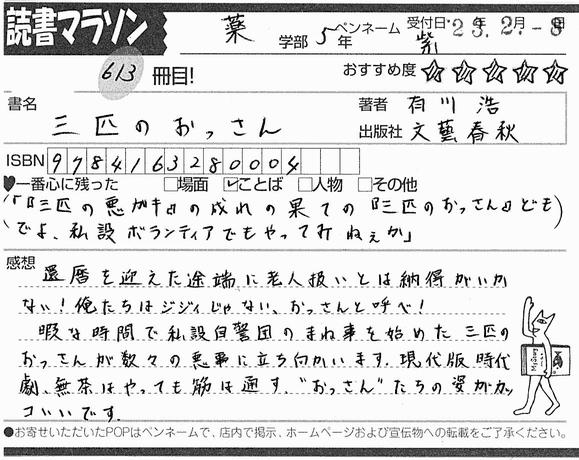 読書マラソン
薬 学部 5年 ペンネーム 紫 受付日 23年2月-8日
613冊目!
おすすめ度 ☆☆☆☆☆
書名 三匹のおっさん
著者 有川 浩
出版社 文藝春秋
ISBN 9784163280004
♥一番心に残った □場面 ☑ことば □人物 □その他
(「『三匹の悪ガキ』の成れの果ての『三匹のおっさん』ども)
でよ、私設ボランティアでもやってみねぇか」
感想
還暦を迎えた途端に老人扱いとは納得がいか
ない!俺たちはジジィじゃない、おっさんと呼べ!
暇な時間で私設自警団のまね事を始めた三匹の
おっさんが数々の悪事に立ち向かいます。現代版時代
劇、無茶はやっても筋は通す、"おっさん"たちの姿がカッ
コいいです。
●お寄せいただいたPOPはペンネームで、店内で掲示、ホームページおよび宣伝物への転載をご了承ください。